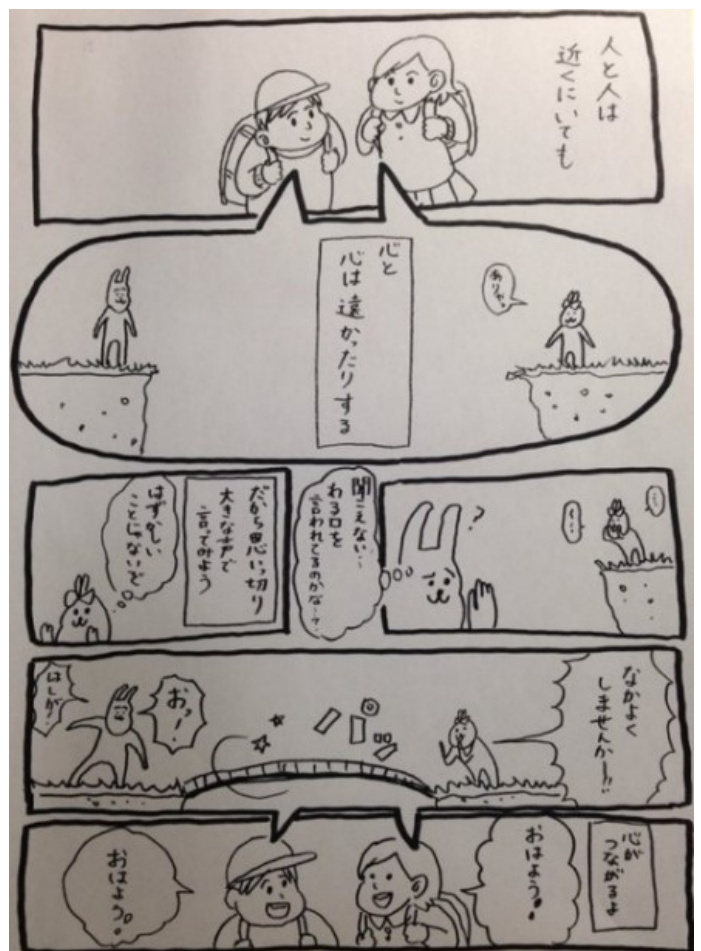 人と人は
近くにいても
心と
心は遠かったりする
ありゃ。
聞こえない…
わる口を
言われてるのかな…?
?
だから思いっ切り
大きな声で
言ってみよう
はずかしい
ことじゃないぞ
なかよく
しませんかー!!
おっ!
はしが!
心が
つながるよ
おはよう!
おはよう!